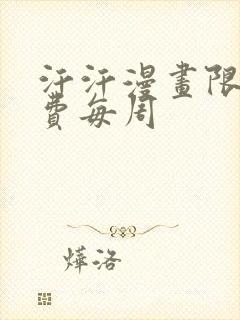 汗汗漫畫限
費每周
燁洛